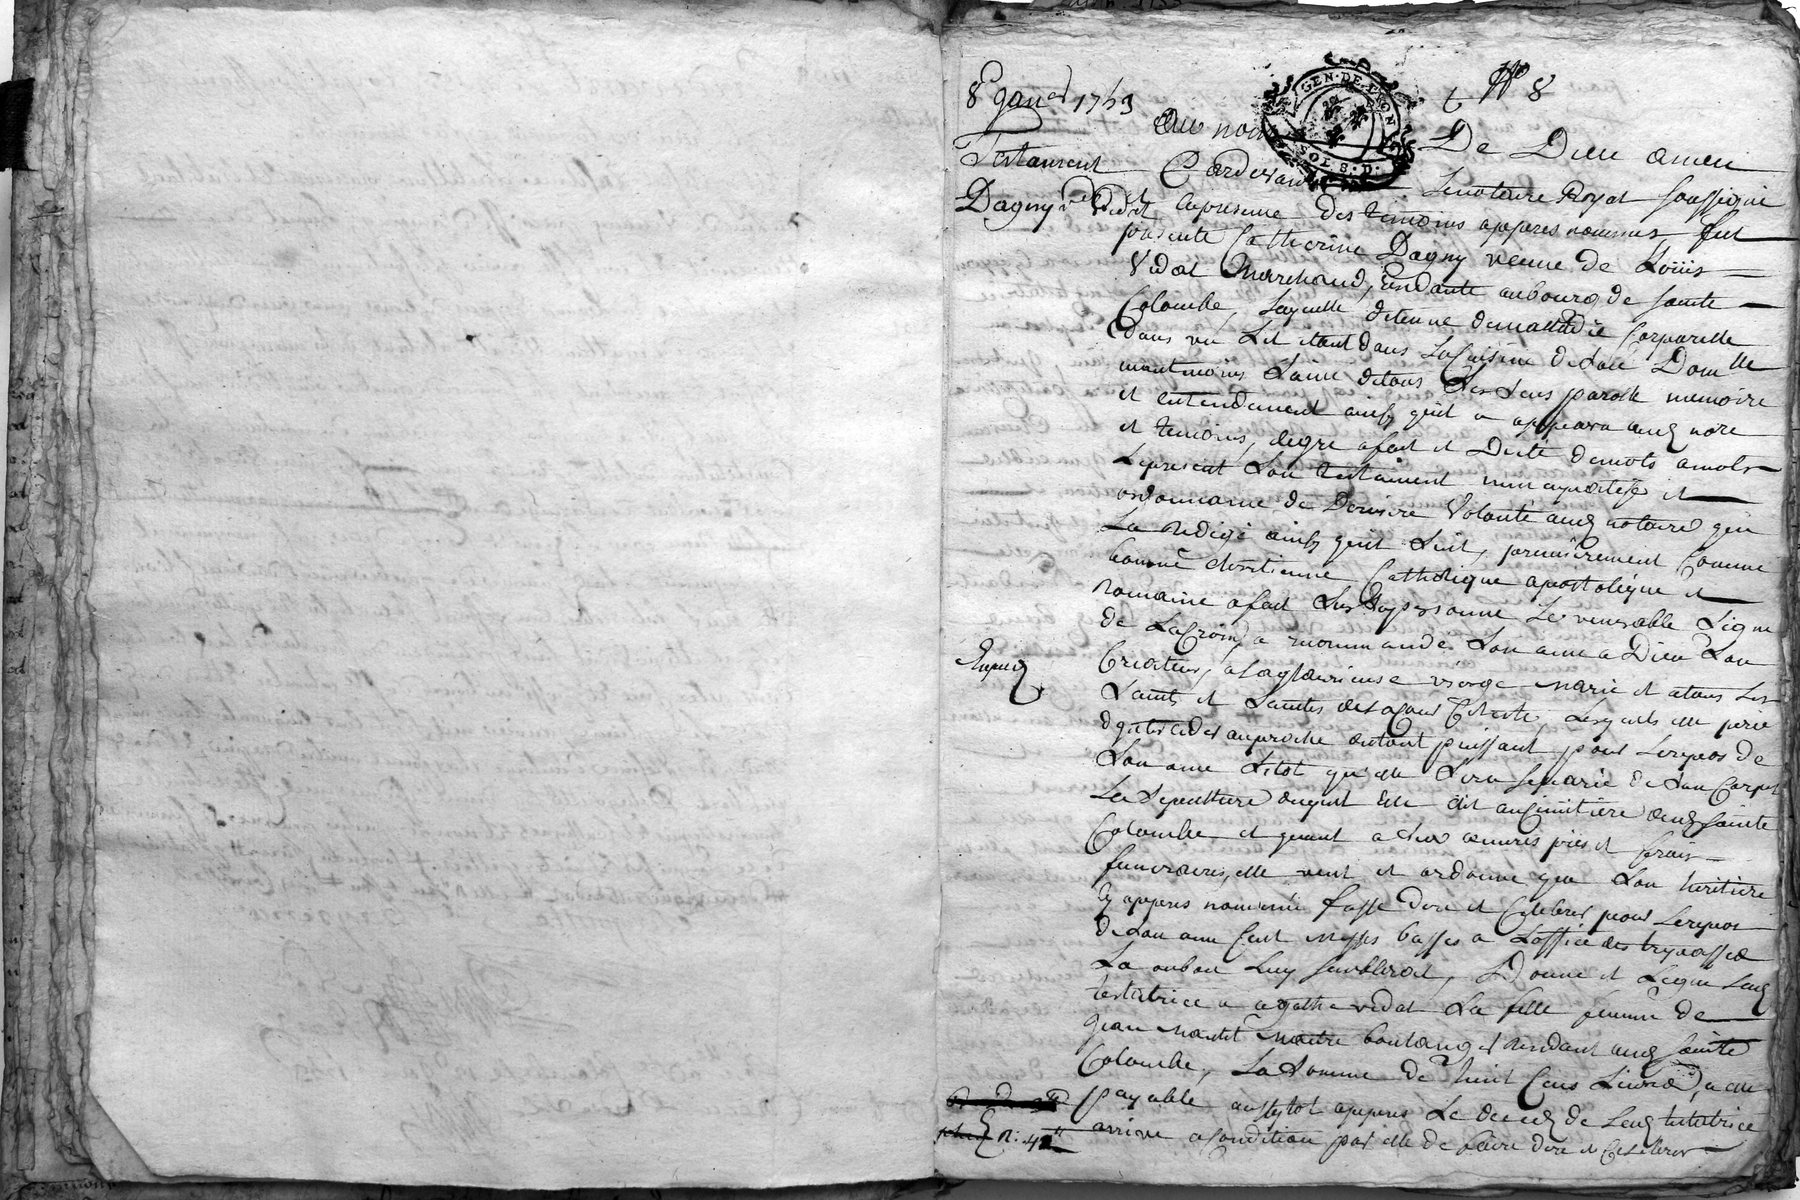 8 Janer 1753
N° 8
GEN·DE·LYON
SOL·8·D·
Testament
Dagny ve Vidal
Expedié
Au nom De Dieu amen
Pardevant Lenotaire Royal soussigné
et enpresence des temoins apprès nommés fut
presente Catherine Dagny veuve de Loüis
Vidal Marchand, Residante aubourg de sainte
Colombe, Laquelle detenue demalladie Corporelle
dans un Lit etant dans Lacuisine deson Domlle
neantmoins saine detous ses sens parolle memoire
et entendement ainsy quil a apparu auxd nore
et temoins, degré afait et Dicté demots amots
Lepresent son testament nuncupatif et
ordonnance de Derniere Volonté aud notaire qui
La Redigé ainsy quil suit, premierement Comme
bonne chretienne Catholique apostolique et
Romaine afait sur sapersonne Le venerable signe
de Lacroix, a recommandé son ame a Dieu son
Createur, a Laglorieuse vierge marie et atous les
saints et saintes delacour Celeste, Lesquels elle prie
dinterceder auprès du toutpuissant pour Lerepos de
son ame sitot qu'elle sera separée deson Corps
La sepulture duquel Elle elit aucimitiere dud sainte
Colombe et quant a ses œuvres pies et frais
funeraires, elle veut et ordonne que son heritiere
cy apprès nommée fasse dire et Celebrer pour Lerepos
deson ame Cent messes basses a Loffice des trepassés
La oubon Luy semblerat, Donne et Legue Lad
testatrice a agathe vidal sa fille femme de
Jean maitre boulanger Residant aud sainte
Colombe, La somme de huit Cens Livres, a elle
payable aussytot apprès Le decedz de Lad testatrice
arrivé acondition par elle de faire dire et Celebrer